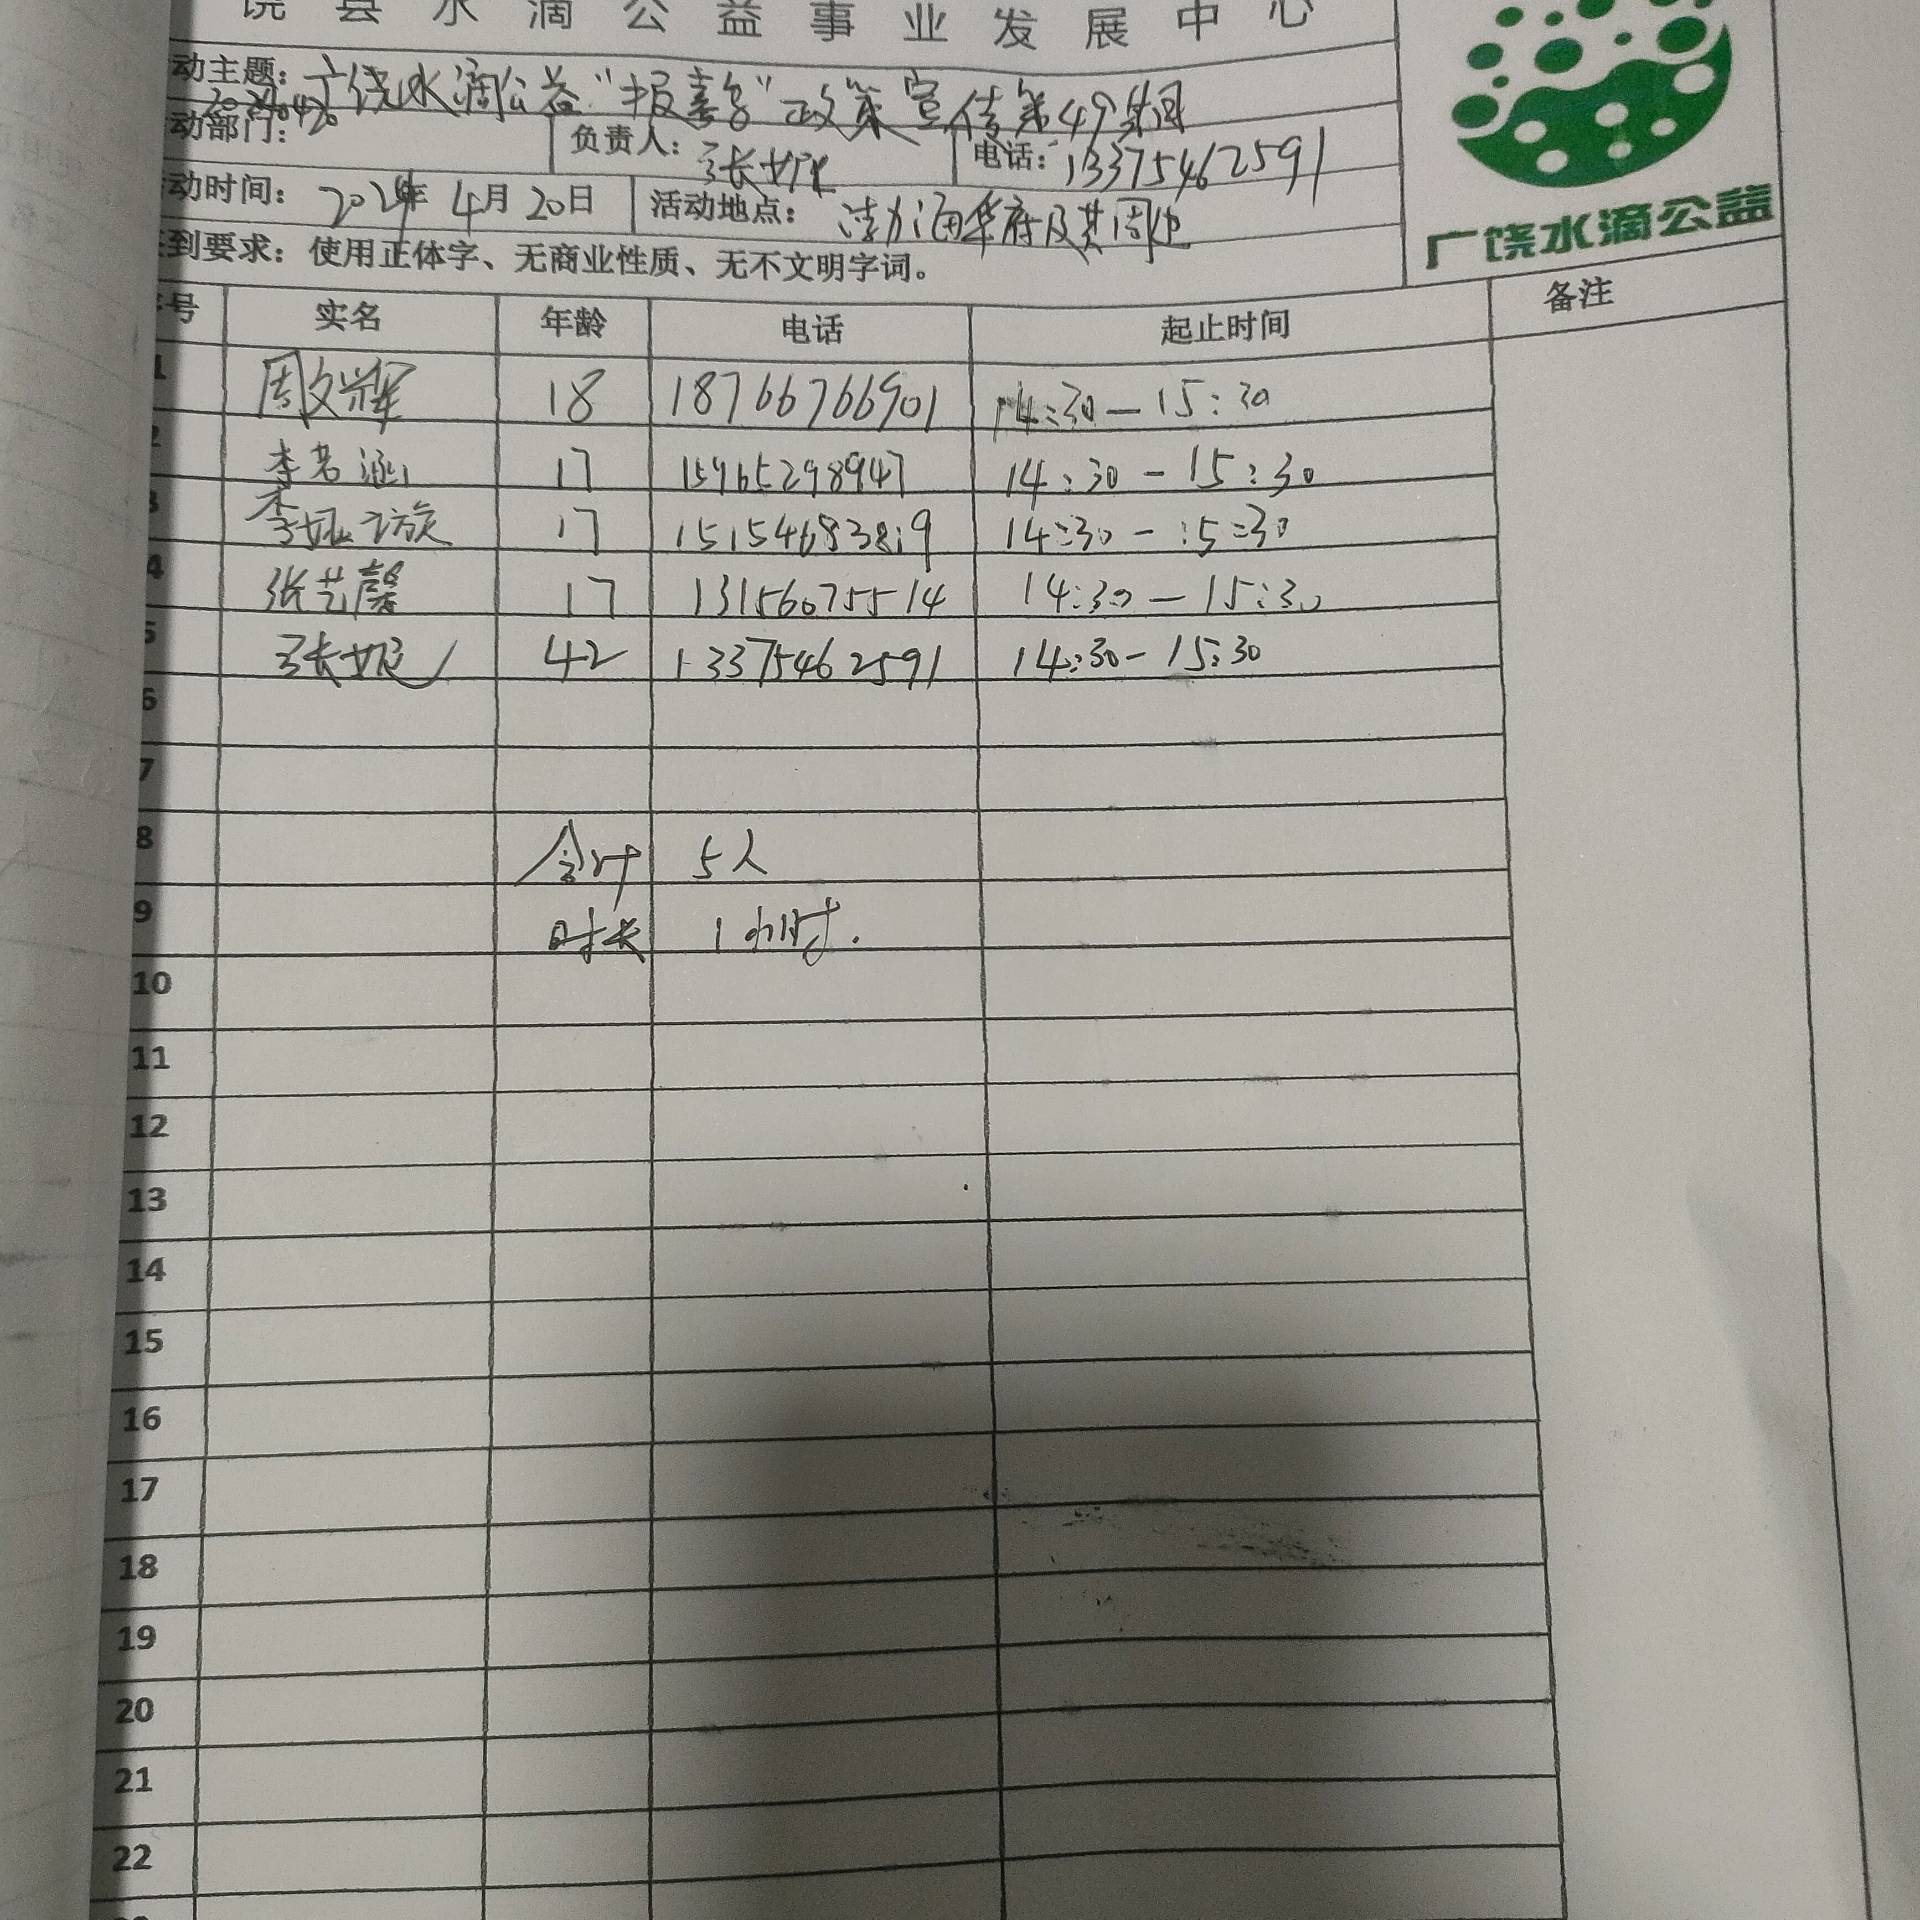 饶县水滴公益事业发展中心
动主题：广饶水滴公益“报喜鸟”政策宣传第49期
动部门：
负责人：张妮
电话：13375462591
动时间：2024年4月20日
活动地点：渤海华府及其周边
到要求：使用正体字、无商业性质、无不文明字词。
广饶水滴公益
号 实名 年龄 电话 起止时间 备注
1 周文辉 18 18766766901 14:30—15:30
2 李若涵 17 15965298947 14:30-15:30
3 李 17 15154683819 14:30-15:30
4 张艺馨 17 13156075514 14:30—15:30
5 张妮 42 13375462591 14:30-15:30
6
7
8 合计 5人
9 时长 1小时.
10
11
12
13
14
15
16
17
18
19
20
21
22